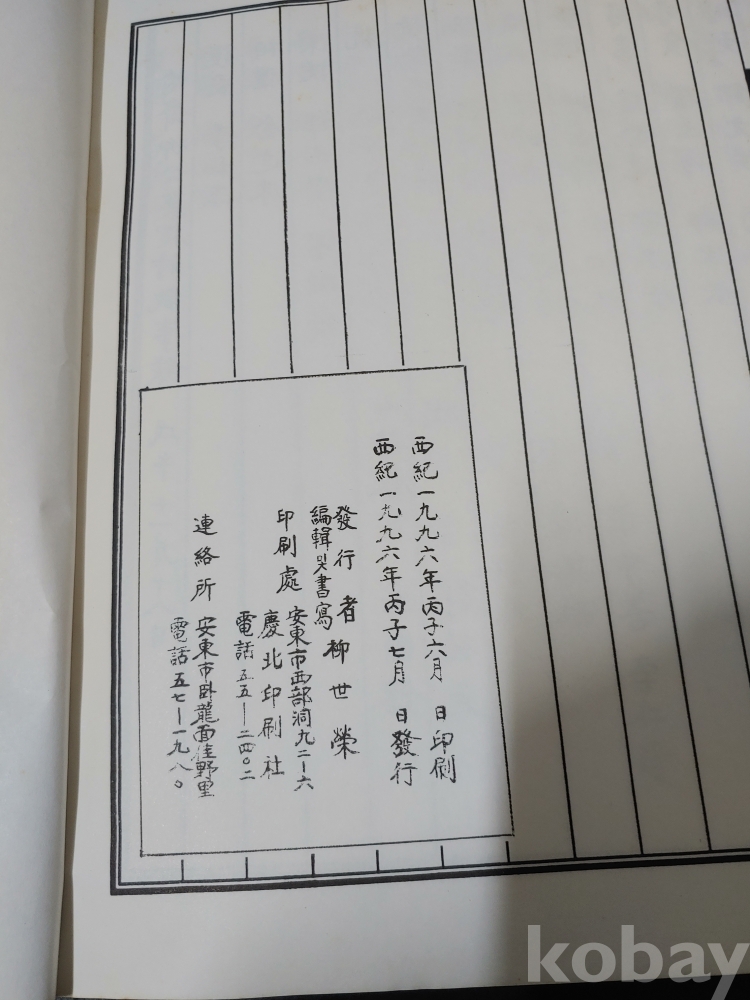 西紀一九九六年丙子六月 日印刷
西紀一九九六年丙子七月 日發行
發行者 柳世榮
編輯및書寫
印刷處 安東市西部洞九二―六
慶北印刷社
電話 五五―二四〇二
連絡所 安東市臥龍面佳野里
電話 五七―一九八〇
kobay